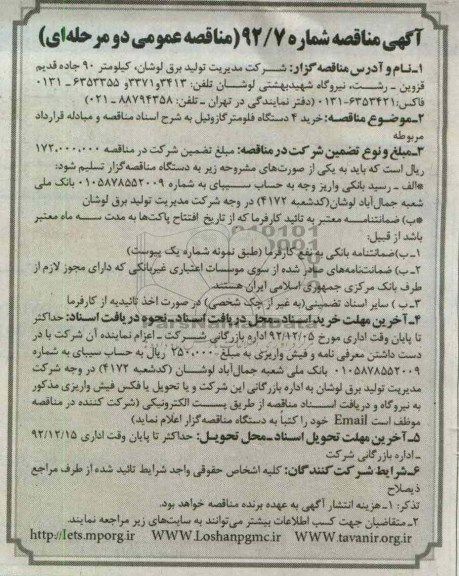 آگهی مناقصه شماره ۹۲/۷ (مناقصه عمومی دو مرحله‌ای)
۱-نام و آدرس مناقصه گزار: شرکت مدیریت تولید برق لوشان، کیلومتر ۹۰ جاده قدیم
قزوین - رشت، نیروگاه شهید بهشتی لوشان تلفن: ۳۴۱۳و۳۳۷۱و ۶۳۵۳۳۵۵ - ۰۱۳۱
فاکس: ۶۳۵۳۴۲۱-۰۱۳۱ (دفتر نمایندگی در تهران - تلفن: ۸۸۷۹۴۳۵۸ - ۰۲۱)
۲-موضوع مناقصه: خرید ۴ دستگاه فلومتر گازوئیل به شرح اسناد مناقصه و مبادله قرارداد
مربوطه
۳-مبلغ و نوع تضمین شرکت در مناقصه: مبلغ تضمین شرکت در مناقصه ۱۷۲,۰۰۰,۰۰۰
ریال است که باید به یکی از صورت‌های مشروحه زیر به دستگاه مناقصه‌گزار تسلیم شود:
*الف - رسید بانکی واریز وجه به حساب سیبای به شماره ۰۱۰۵۸۷۸۵۵۲۰۰۹ بانک ملی
شعبه جمال‌آباد لوشان (کدشعبه ۴۱۷۲) در وجه شرکت مدیریت تولید برق لوشان
*ب) ضمانتنامه معتبر به تائید کارفرما که از تاریخ افتتاح پاکت‌ها به مدت سه ماه معتبر
باشد از قبیل:
۱-ب) ضمانتنامه بانکی به نفع کارفرما (طبق نمونه شماره یک پیوست)
۲-ب) ضمانتنامه‌های صادر شده از سوی موسسات اعتباری غیربانکی که دارای مجوز لازم از
طرف بانک مرکزی جمهوری اسلامی ایران هستند.
۳-ب) سایر اسناد تضمینی (به غیر از چک شخصی) در صورت اخذ تائیدیه از کارفرما
۴-آخرین مهلت خرید اسناد-محل دریافت اسناد-نحوه دریافت اسناد: حداکثر
تا پایان وقت اداری مورخ ۹۲/۱۲/۰۵ اداره بازرگانی شرکت - اعزام نماینده آن شرکت با در
دست داشتن معرفی نامه و فیش واریزی به مبلغ ۲۵۰,۰۰۰ ریال به حساب سیبای به شماره
۰۱۰۵۸۷۸۵۵۲۰۰۹ بانک ملی شعبه جمال‌آباد لوشان (کدشعبه ۴۱۷۲) در وجه شرکت
مدیریت تولید برق لوشان به اداره بازرگانی این شرکت و یا تحویل یا فکس فیش واریزی مذکور
به نیروگاه و دریافت اسناد مناقصه از طریق پست الکترونیکی (شرکت کننده در مناقصه
موظف است Email خود را کتباً به دستگاه مناقصه‌گزار اعلام نماید)
۵-آخرین مهلت تحویل اسناد-محل تحویل: حداکثر تا پایان وقت اداری ۹۲/۱۲/۱۵
- اداره بازرگانی شرکت
۶-شرایط شرکت کنندگان: کلیه اشخاص حقوقی واجد شرایط تائید شده از طرف مراجع
ذیصلاح
تذکر: ۱-هزینه انتشار آگهی به عهده برنده مناقصه خواهد بود.
۲-متقاضیان جهت کسب اطلاعات بیشتر می‌توانند به سایت‌های زیر مراجعه نمایند.
http://Iets.mporg.ir WWW.Loshanpgmc.ir WWW.tavanir.org.ir